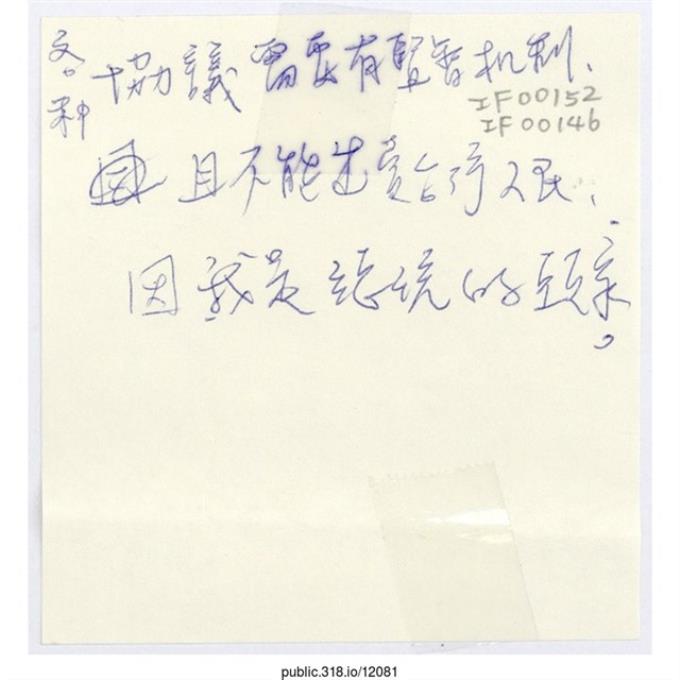 各種協議需要有監督机制、
IF00152
IF00146
且不能出賣台灣人民、
因我是總統的頭家。
public.318.io/12081